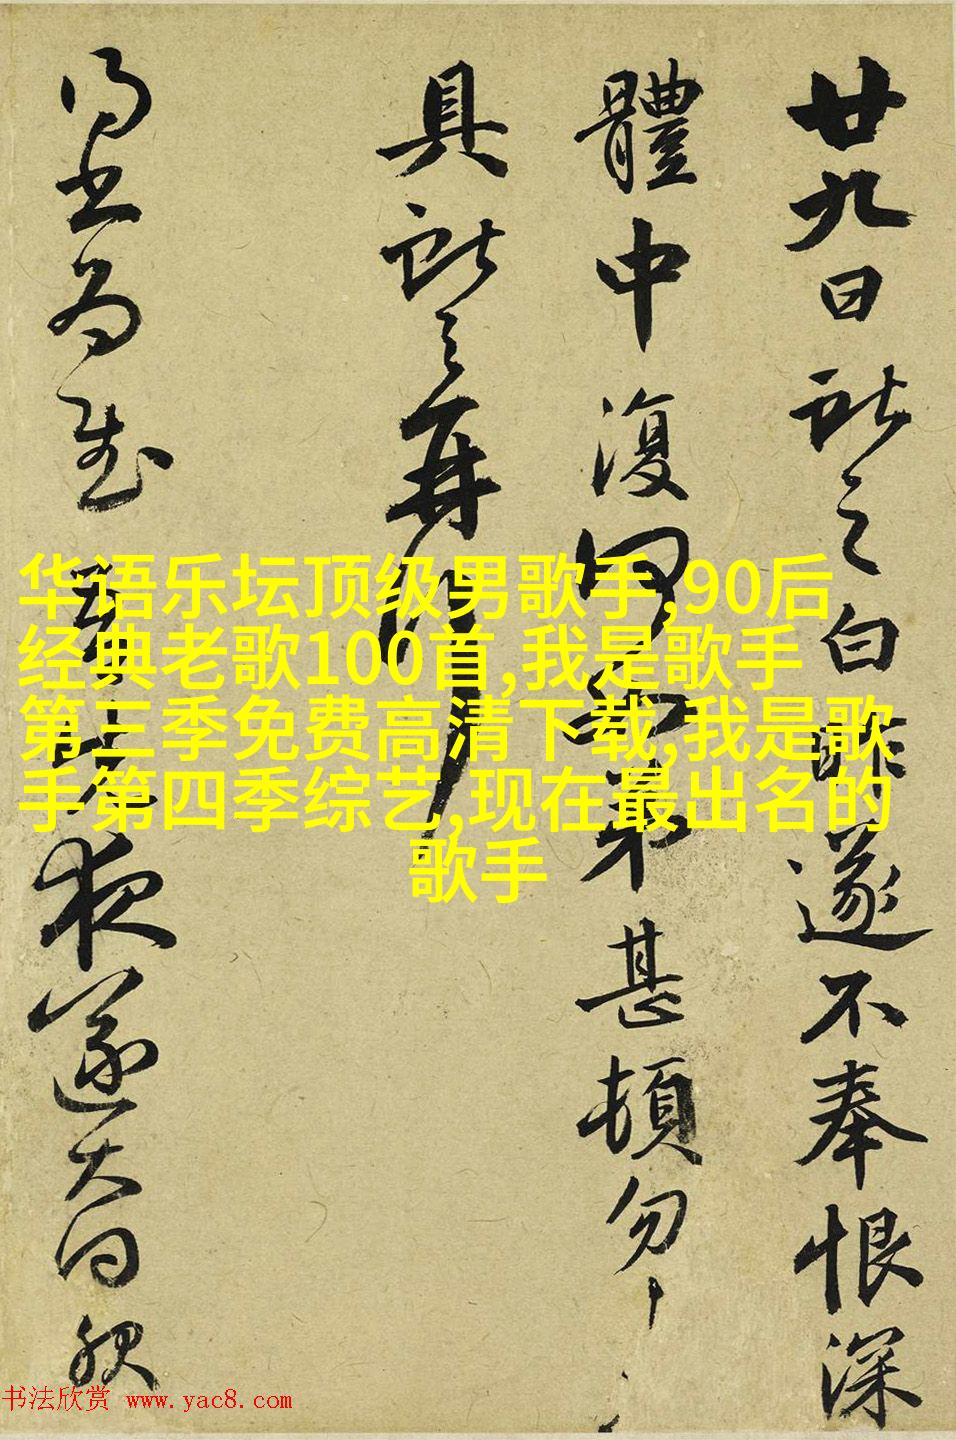 廿九日獻之白昨遂不奉恨深
體中復何如弟甚頓匆匆
具獻之再拜
得書為慰
夜遂大
华语乐坛顶级男歌手,90后
经典老歌100首,我是歌手
第三季免费高清下载,我是歌
手第四季综艺,现在最出名的
歌手
书法欣赏 www.yac8.com